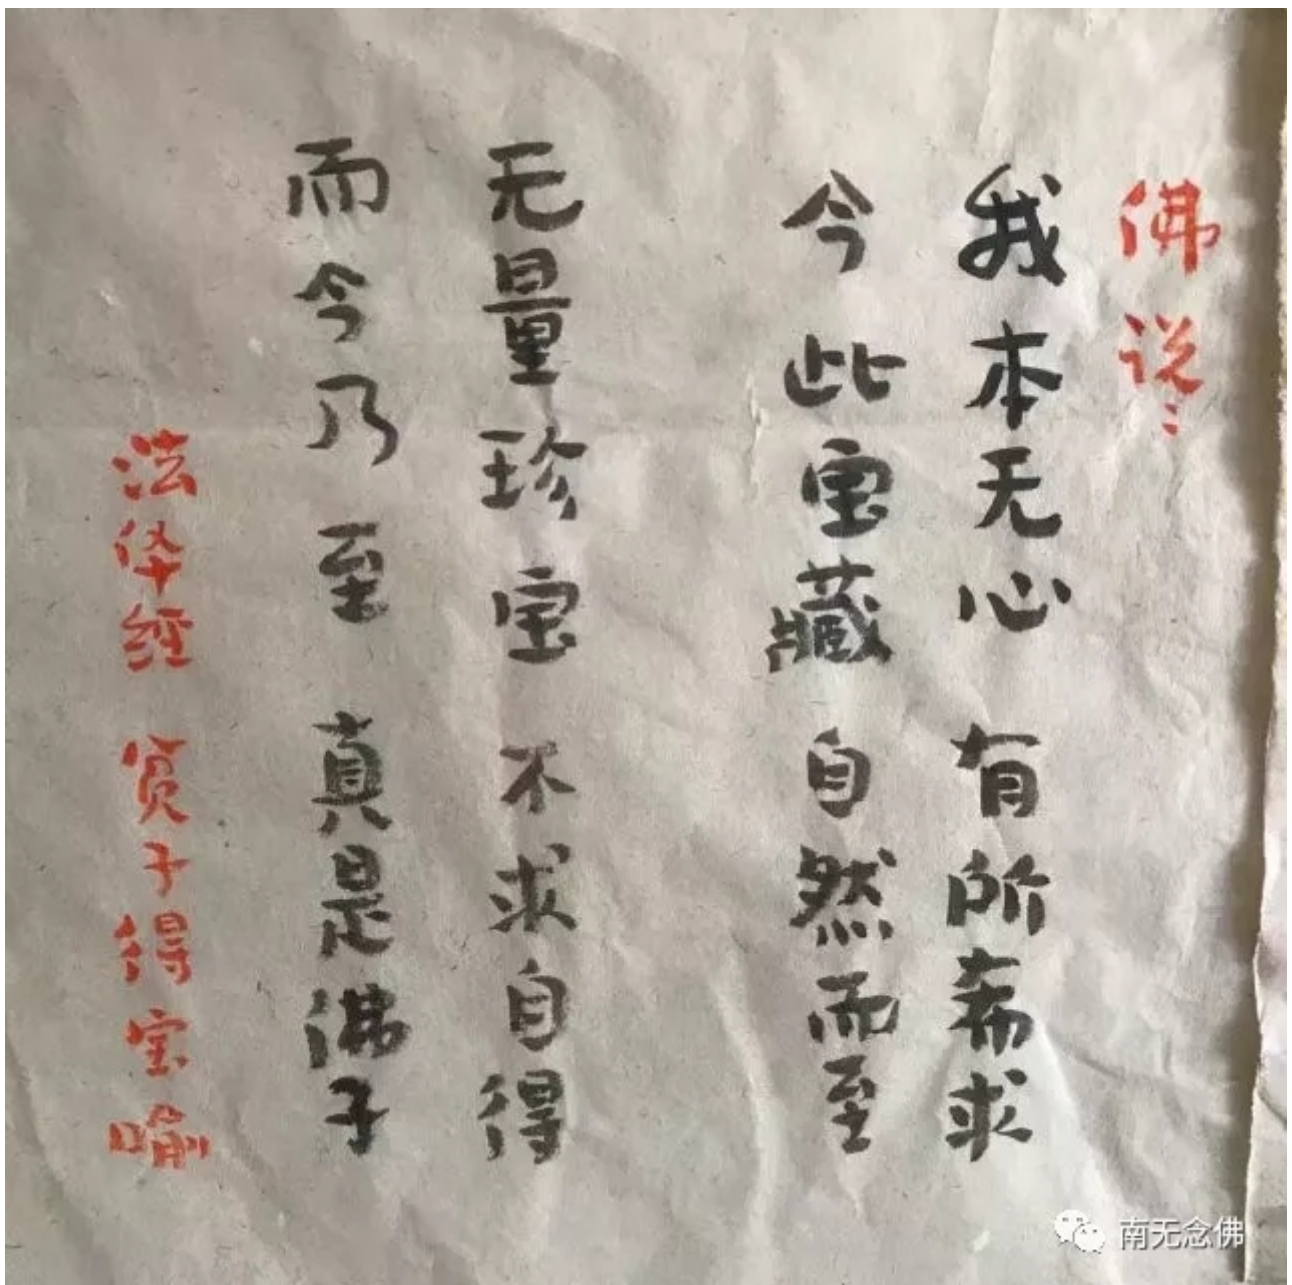 佛说：
我本无心 有所希求
今此宝藏 自然而至
无量珍宝 不求自得
而今乃至 真是佛子
法华经 贫子得宝喻
南无念佛